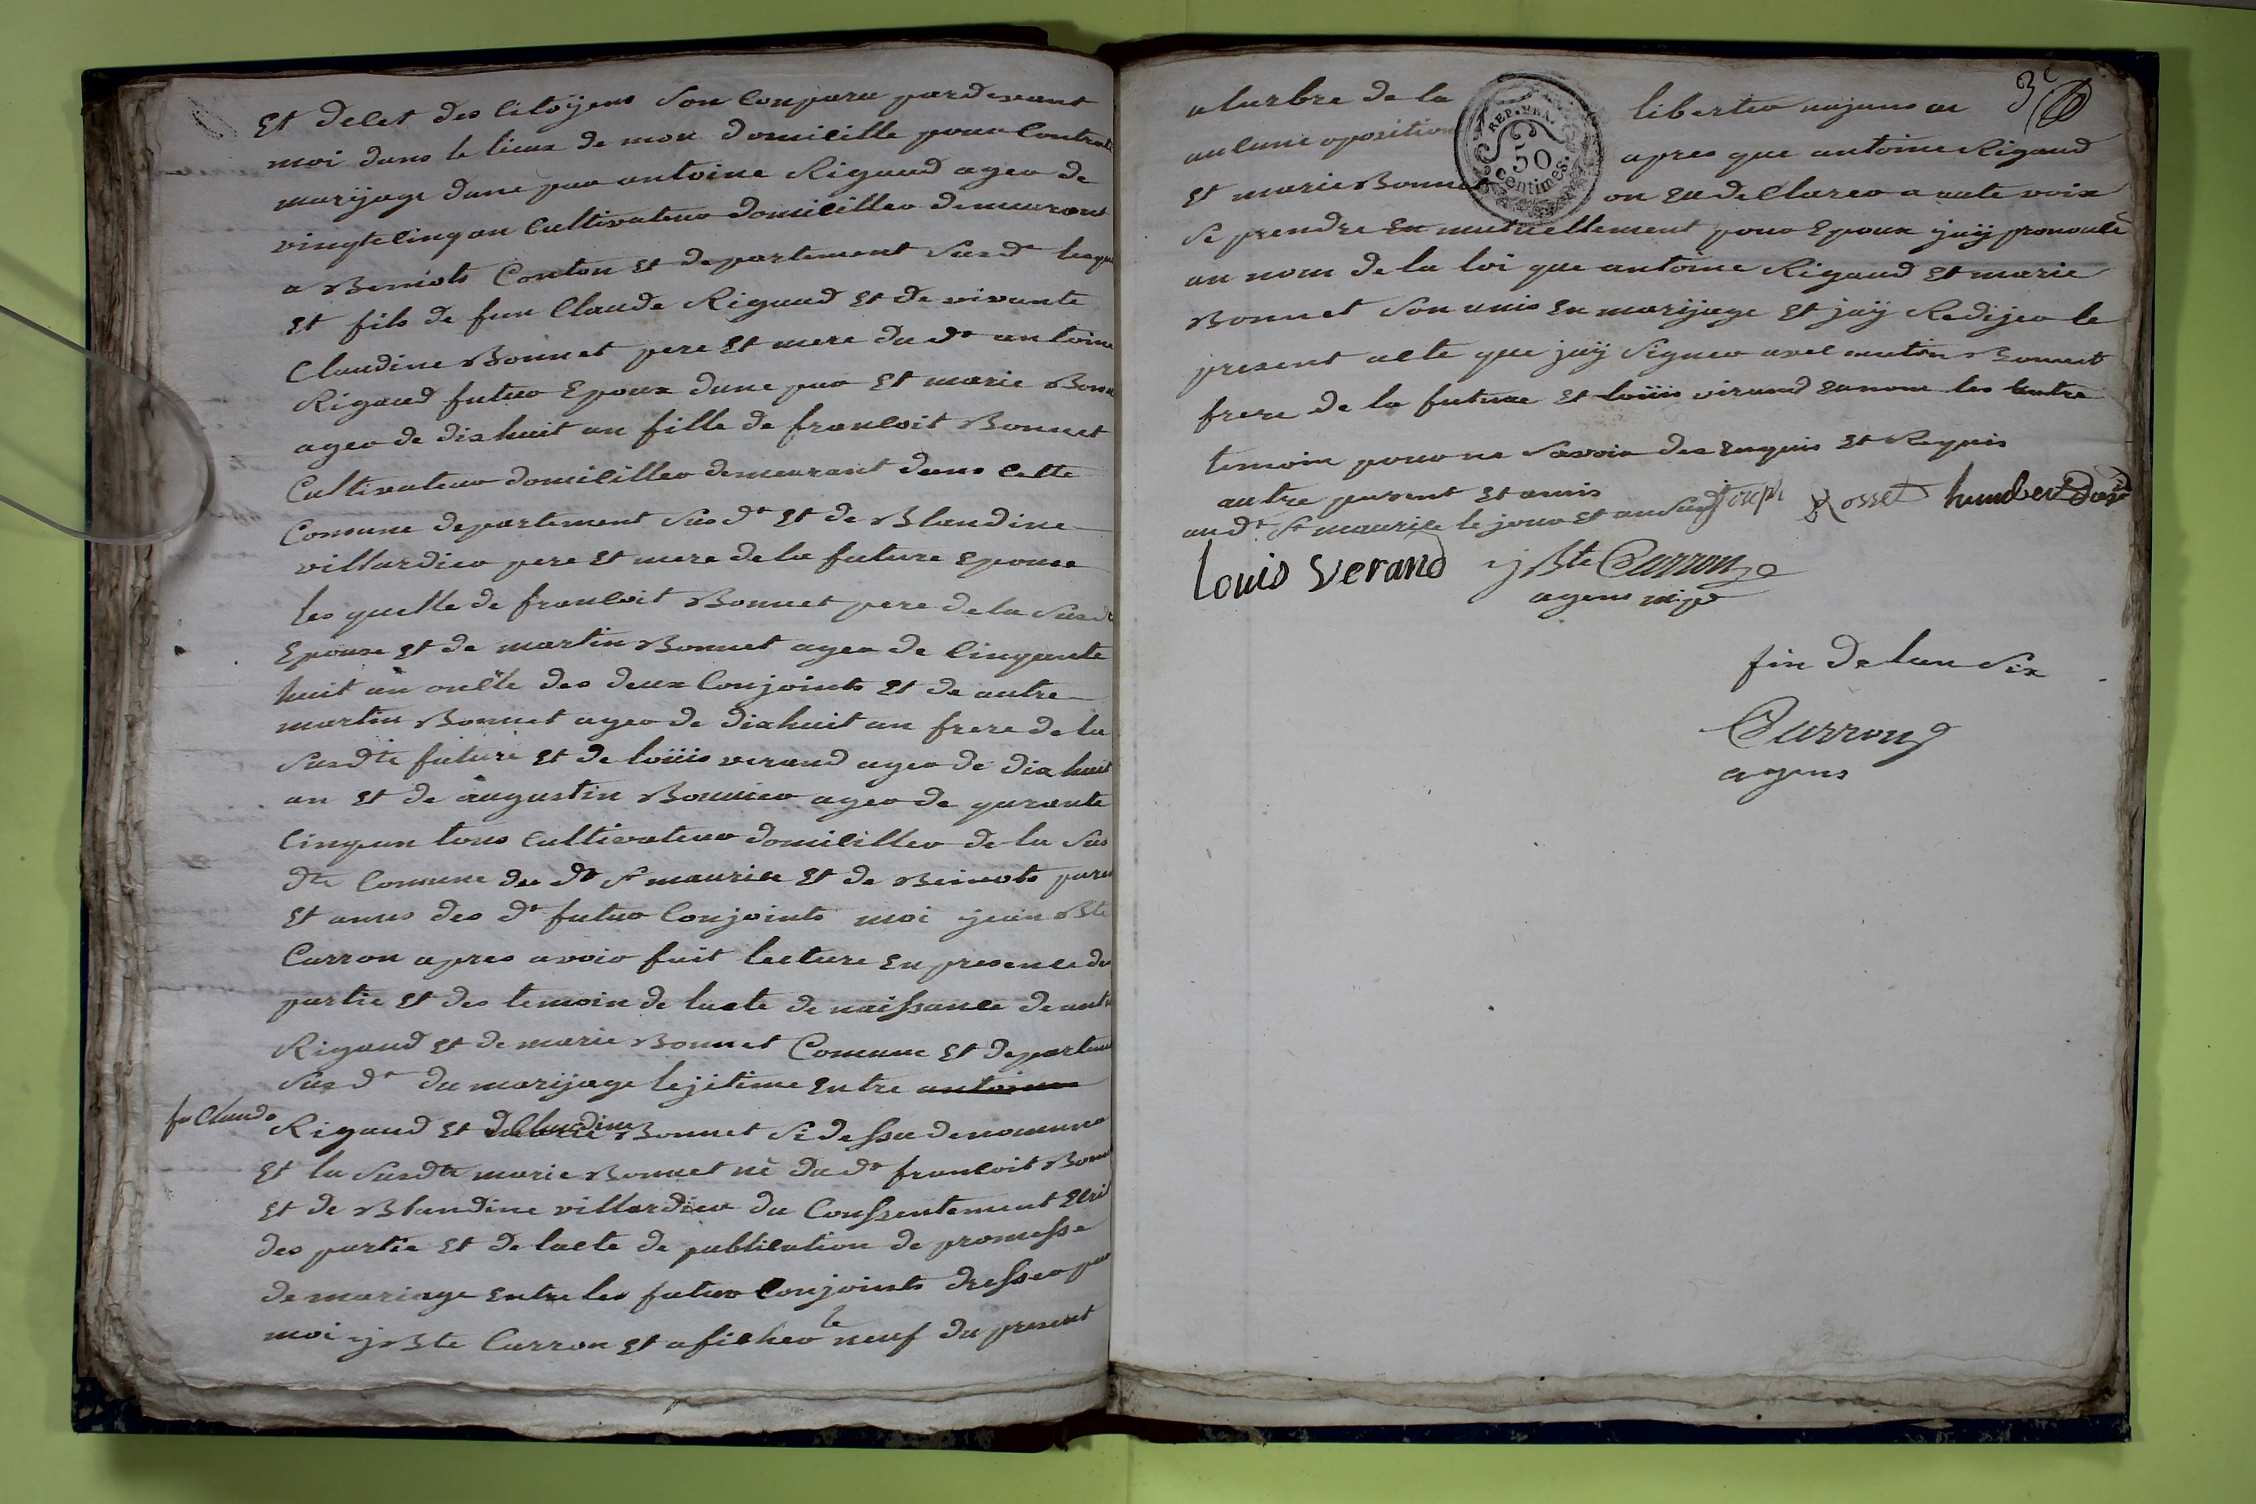 Et decet des Citoÿens Son Conparu pardevant
moi dans le lieux de mon domicille pour Contrate
marijage dune par antoine Rigaud ageo de
vingtcinq an Cultivateur domicilleo demeurant
a Beniots Conton Et departement Susdt
Et fils de feu Claude Rigaud Et de vivante
Claudine Bonnet pere Et mere du dt antoine
Rigaud futur Epoux dune par Et marie Bonn
ageo de dixhuit an fille de francoit Bonnet
Cultivateur domicilleo demeurant dans cette
Comune departement Susdt Et de Blandine
villardieo pere Et mere de la future Epouse
les quelle de francoit Bonnet pere de la Susd
Epouse Et de martin Bonnet ageo de Cinquante
huit an oncle des deux Conjoints Et de autre
martin Bonnet ageo de dixhuit an frere de la
Susdte future Et de loüis verand ageo de dix huit
an Et de augustin ageo de qurante
Cinq an tous Cultivateur domicilleo de la Sus
dte Comune du dt St maurice Et de Beniots paren
Et amis des dt futur Conjoints moi jean Bte
Curron apres avoir fait lecture En presence du
partie Et des temoin de lacte de naissance de anto
Rigaud Et de marie Bonnet Comune Et departem
Susdt du marijage lejitime Entre antoine
fu Claude Rigaud Et de Claudine Bonnet Si dessu denommeo
Et la Susdte marie Bonnet né du dt francoit Bonne
Et de Blandine villardieu du Conssentement Ecrit
des partie Et de lacte de publication de promesse
de mariage Entre les futur Conjoints dresseo par
moi j Bte Curron Et aficheo le neuf du present
3e
a larbre de la liberteo najans ue
aucune oposition apres que antoine Rigaud
Et marie Bonnet on Eu declareo a aute voix
Se prendre En mutuellement pour Epoux jaÿ pronoulé
au nom de la loi que antoine Rigaud Et marie
Bonnet Son unis En marijage Et jaÿ Redijeo le
present acte que jaÿ Signeo avec Bonnet
frere de la future Et loüis virand Ennom les autre
temoin pour ne Savoir des Enquis Et Requis
autre parent Et amis
au dt St maurice le jour Et an Susd Joseph Rosset humbert
REP. FRA.
50
centimes.
louis verand j Bte Curron
agens mipe
fin de lan Six
Curron
agens